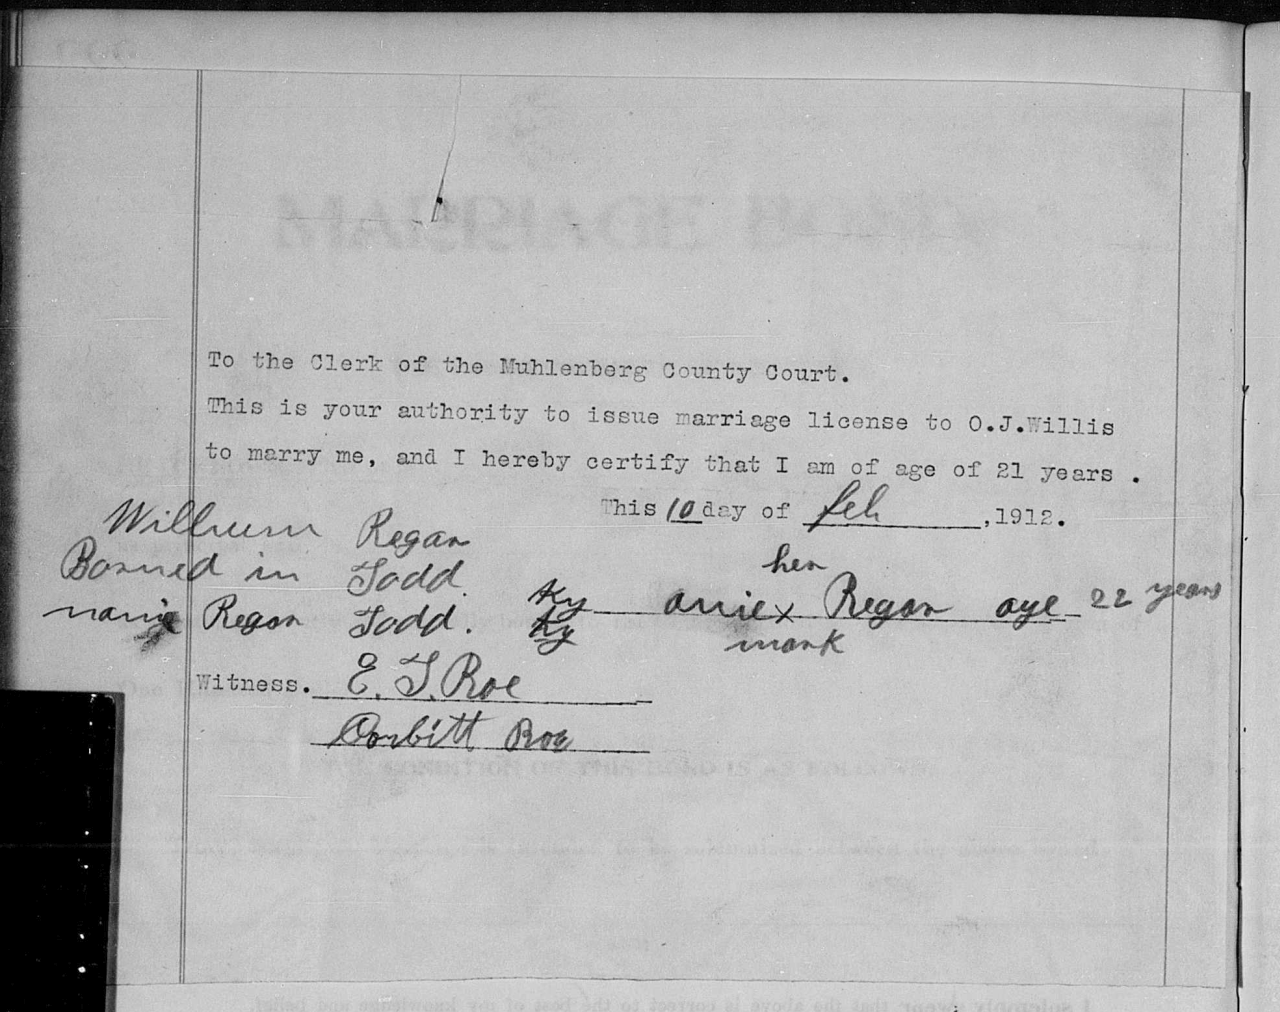 MARRIAGE BOND
To the Clerk of the Muhlenberg County Court.
This is your authority to issue marriage license to O.J.Willis
to marry me, and I hereby certify that I am of age of 21 years .
This 10 day of feb ,1912.
Willium Regan
Borned in Todd. Ky
her
anie x Regan age 22 years
mark
Regan Todd. Ky
Witness. E. T. Roe
Corbitt Roe
THE CONDITION OF THIS BOND IS AS FOLLOWS